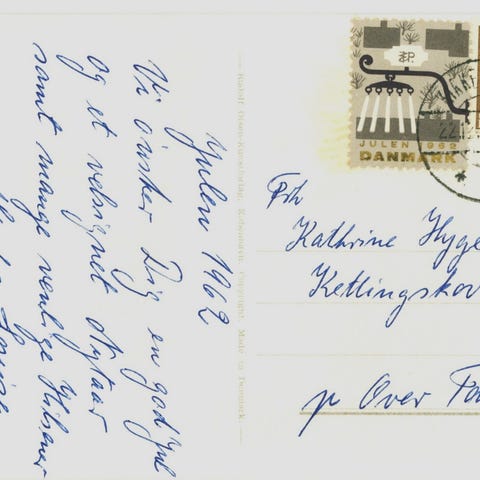 Julen 1962
Vi ønsker Dig en god Jul
og et velsignet Nytaar
samt mange venlige Hilsner
Rudolf Olsen Kunstforlag, København. Copyright. Made in Denmark.
JULEN 1962
DANMARK
22.12
Frk
Kathrine Hyge
Ketlingskov
pr Over